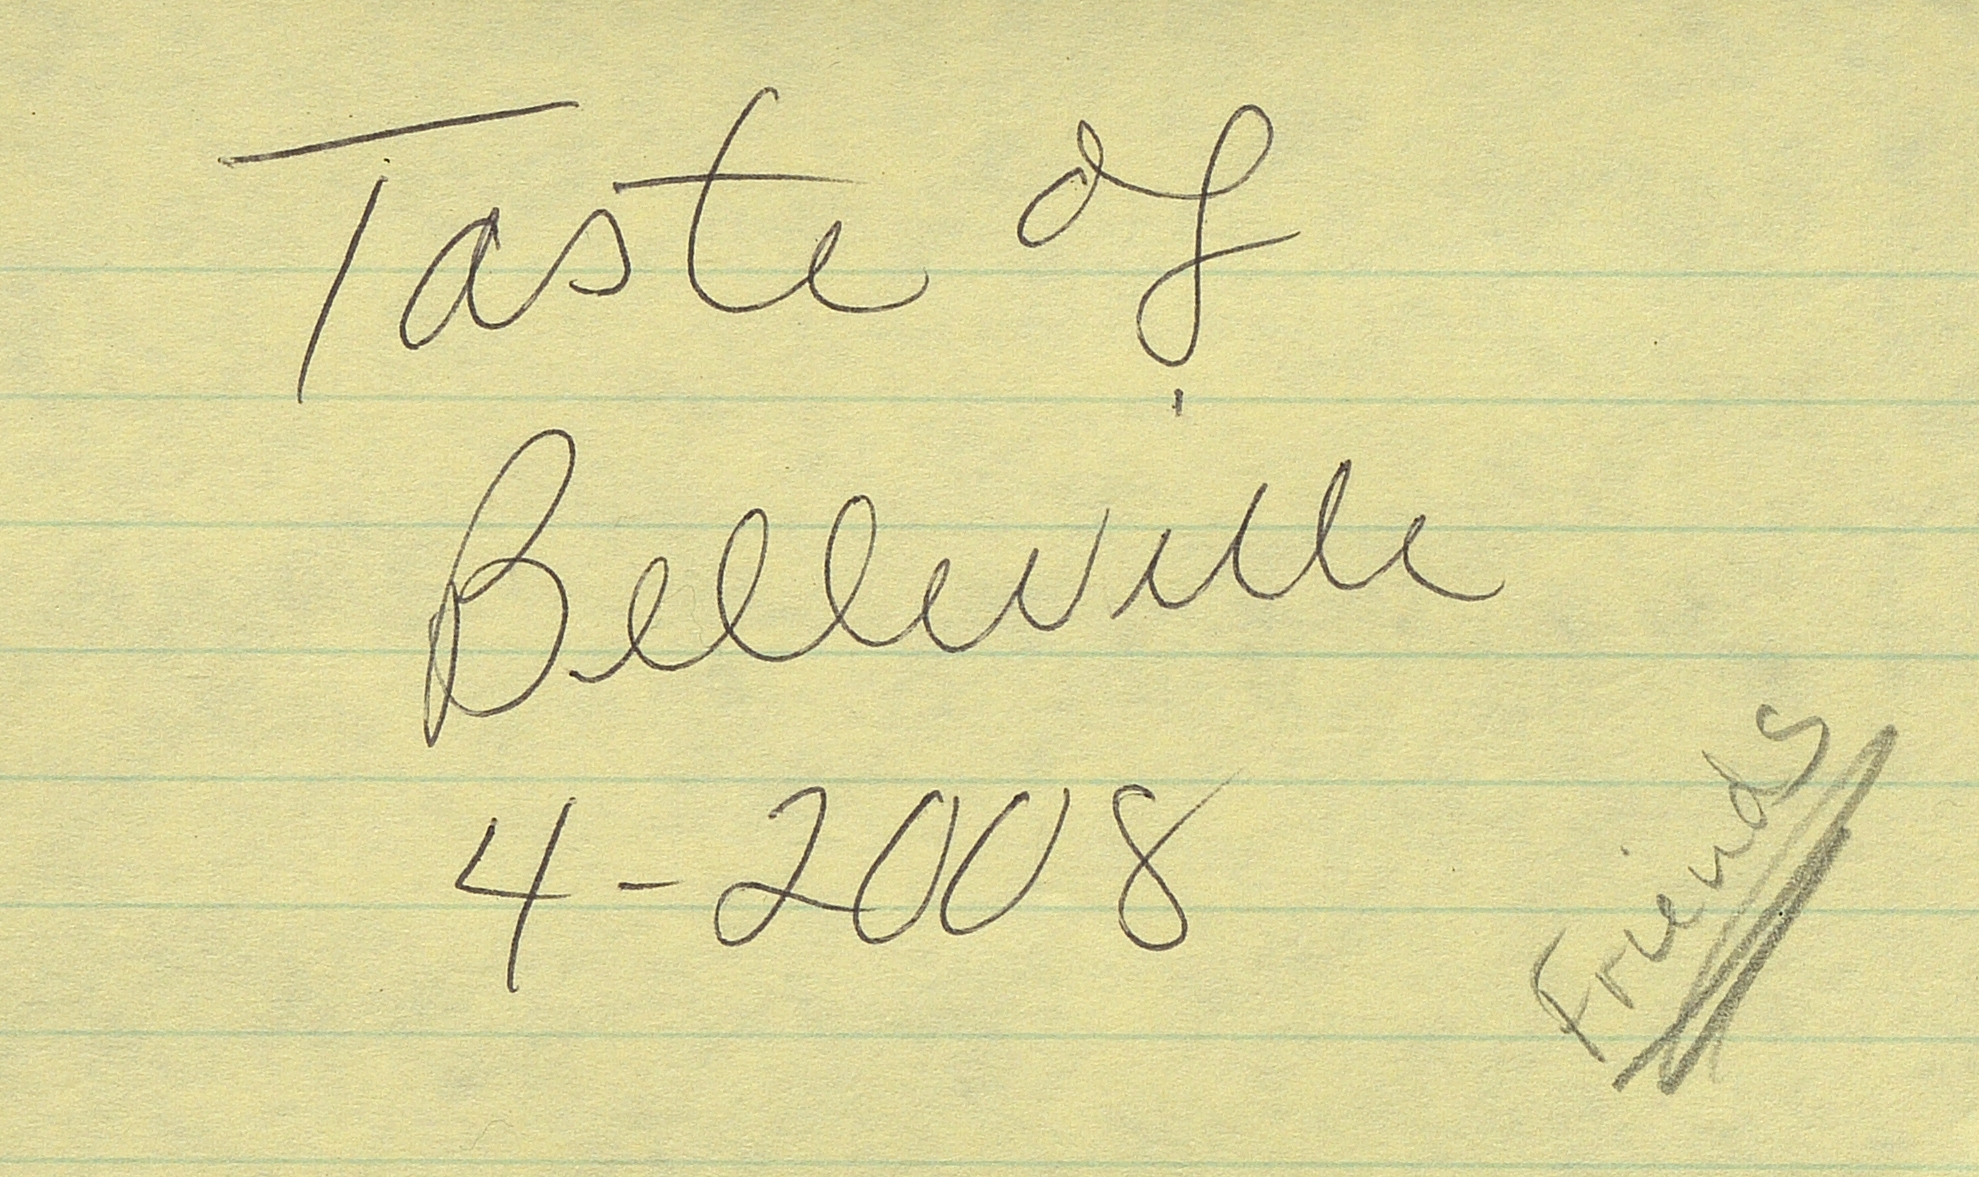 Taste of
Belleville
4-2008
Friends